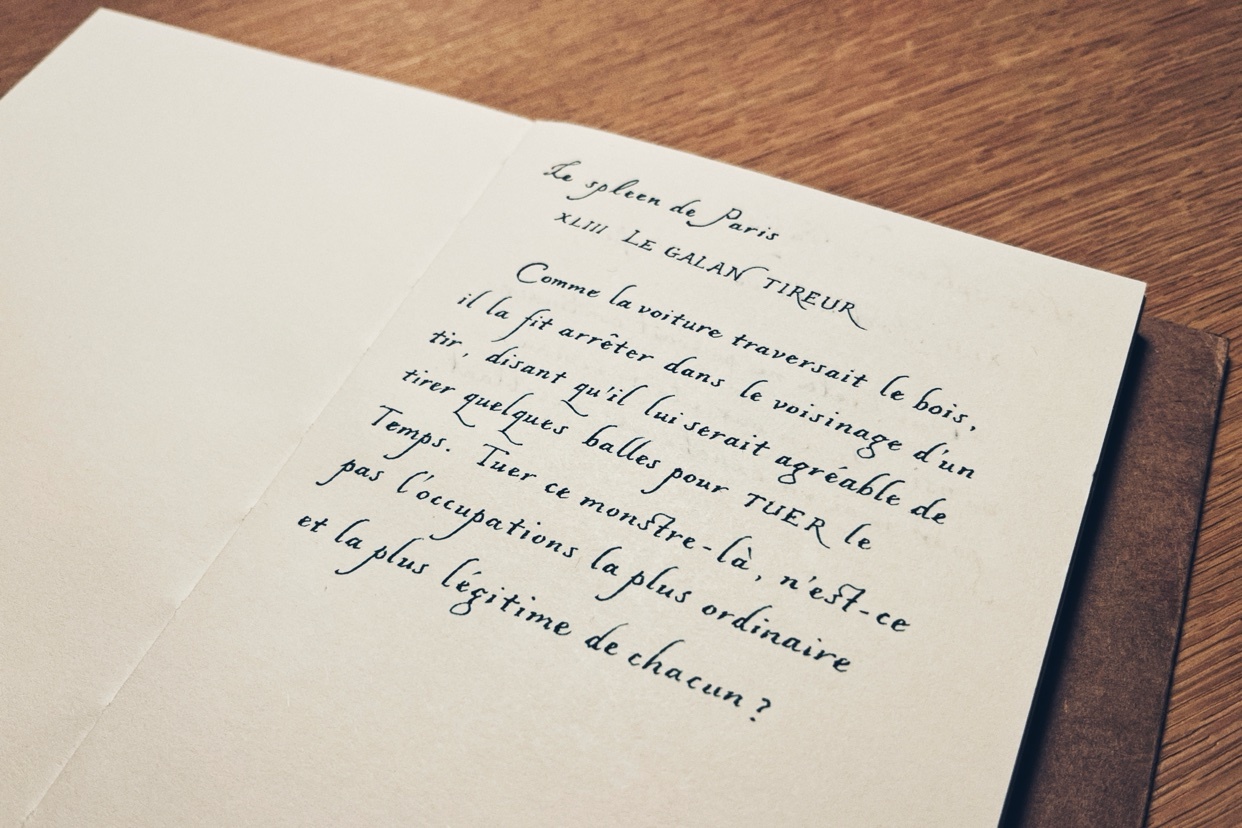 Le spleen de Paris
XLIII LE GALAN TIREUR
Comme la voiture traversait le bois,
il la fit arrêter dans le voisinage d'un
tir, disant qu'il lui serait agréable de
tirer quelques balles pour TUER le
Temps. Tuer ce monstre-là, n'est-ce
pas l'occupations la plus ordinaire
et la plus légitime de chacun ?